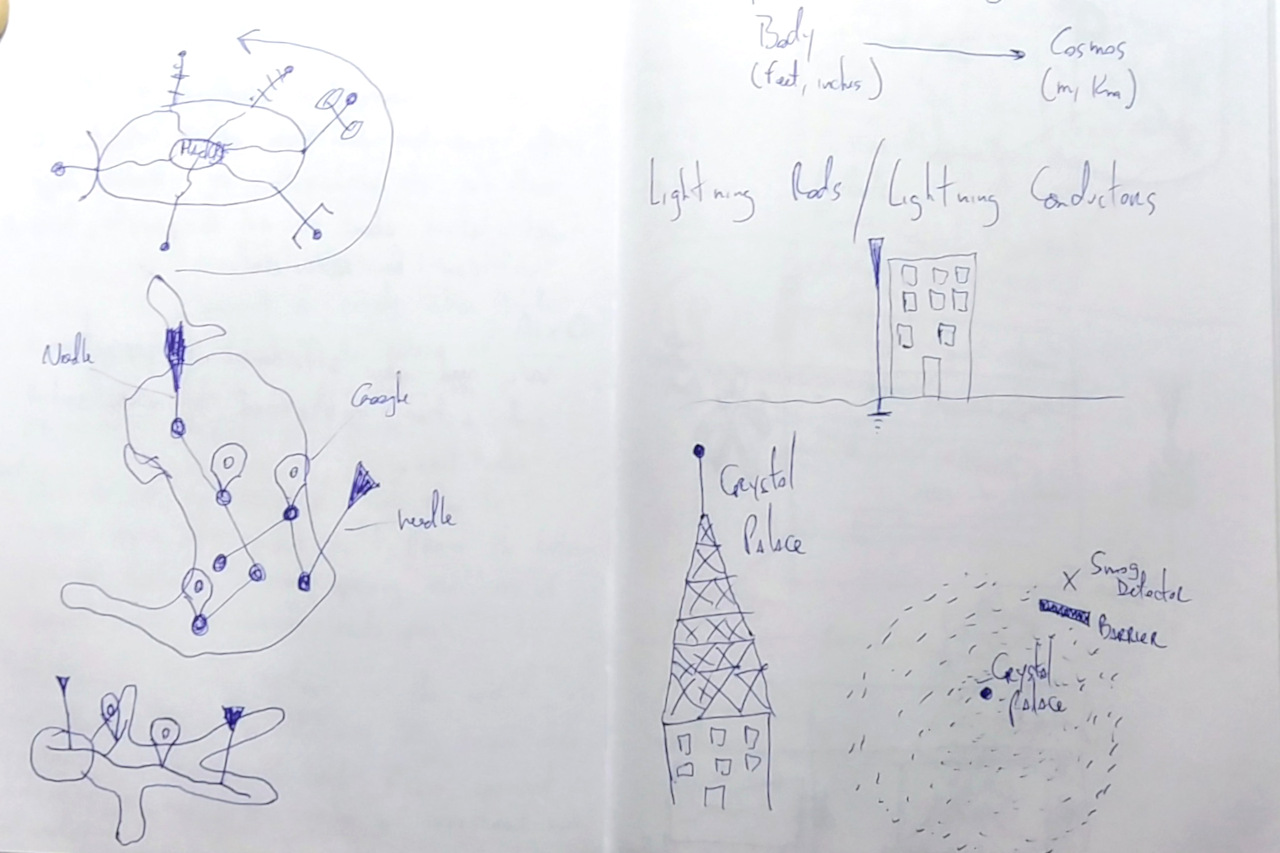 Needle
Google
needle
Body
(feet, inches)
Cosmos
(m, Km)
Lightning Rods / Lightning Conductors
Crystal
Palace
X Smog
Detector
BARRIER
Crystal
Palace